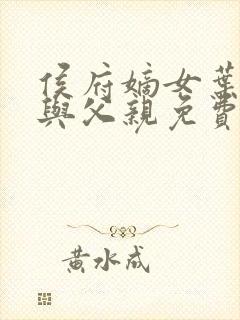 侯府嫡女葉
與父親免費
黃水成